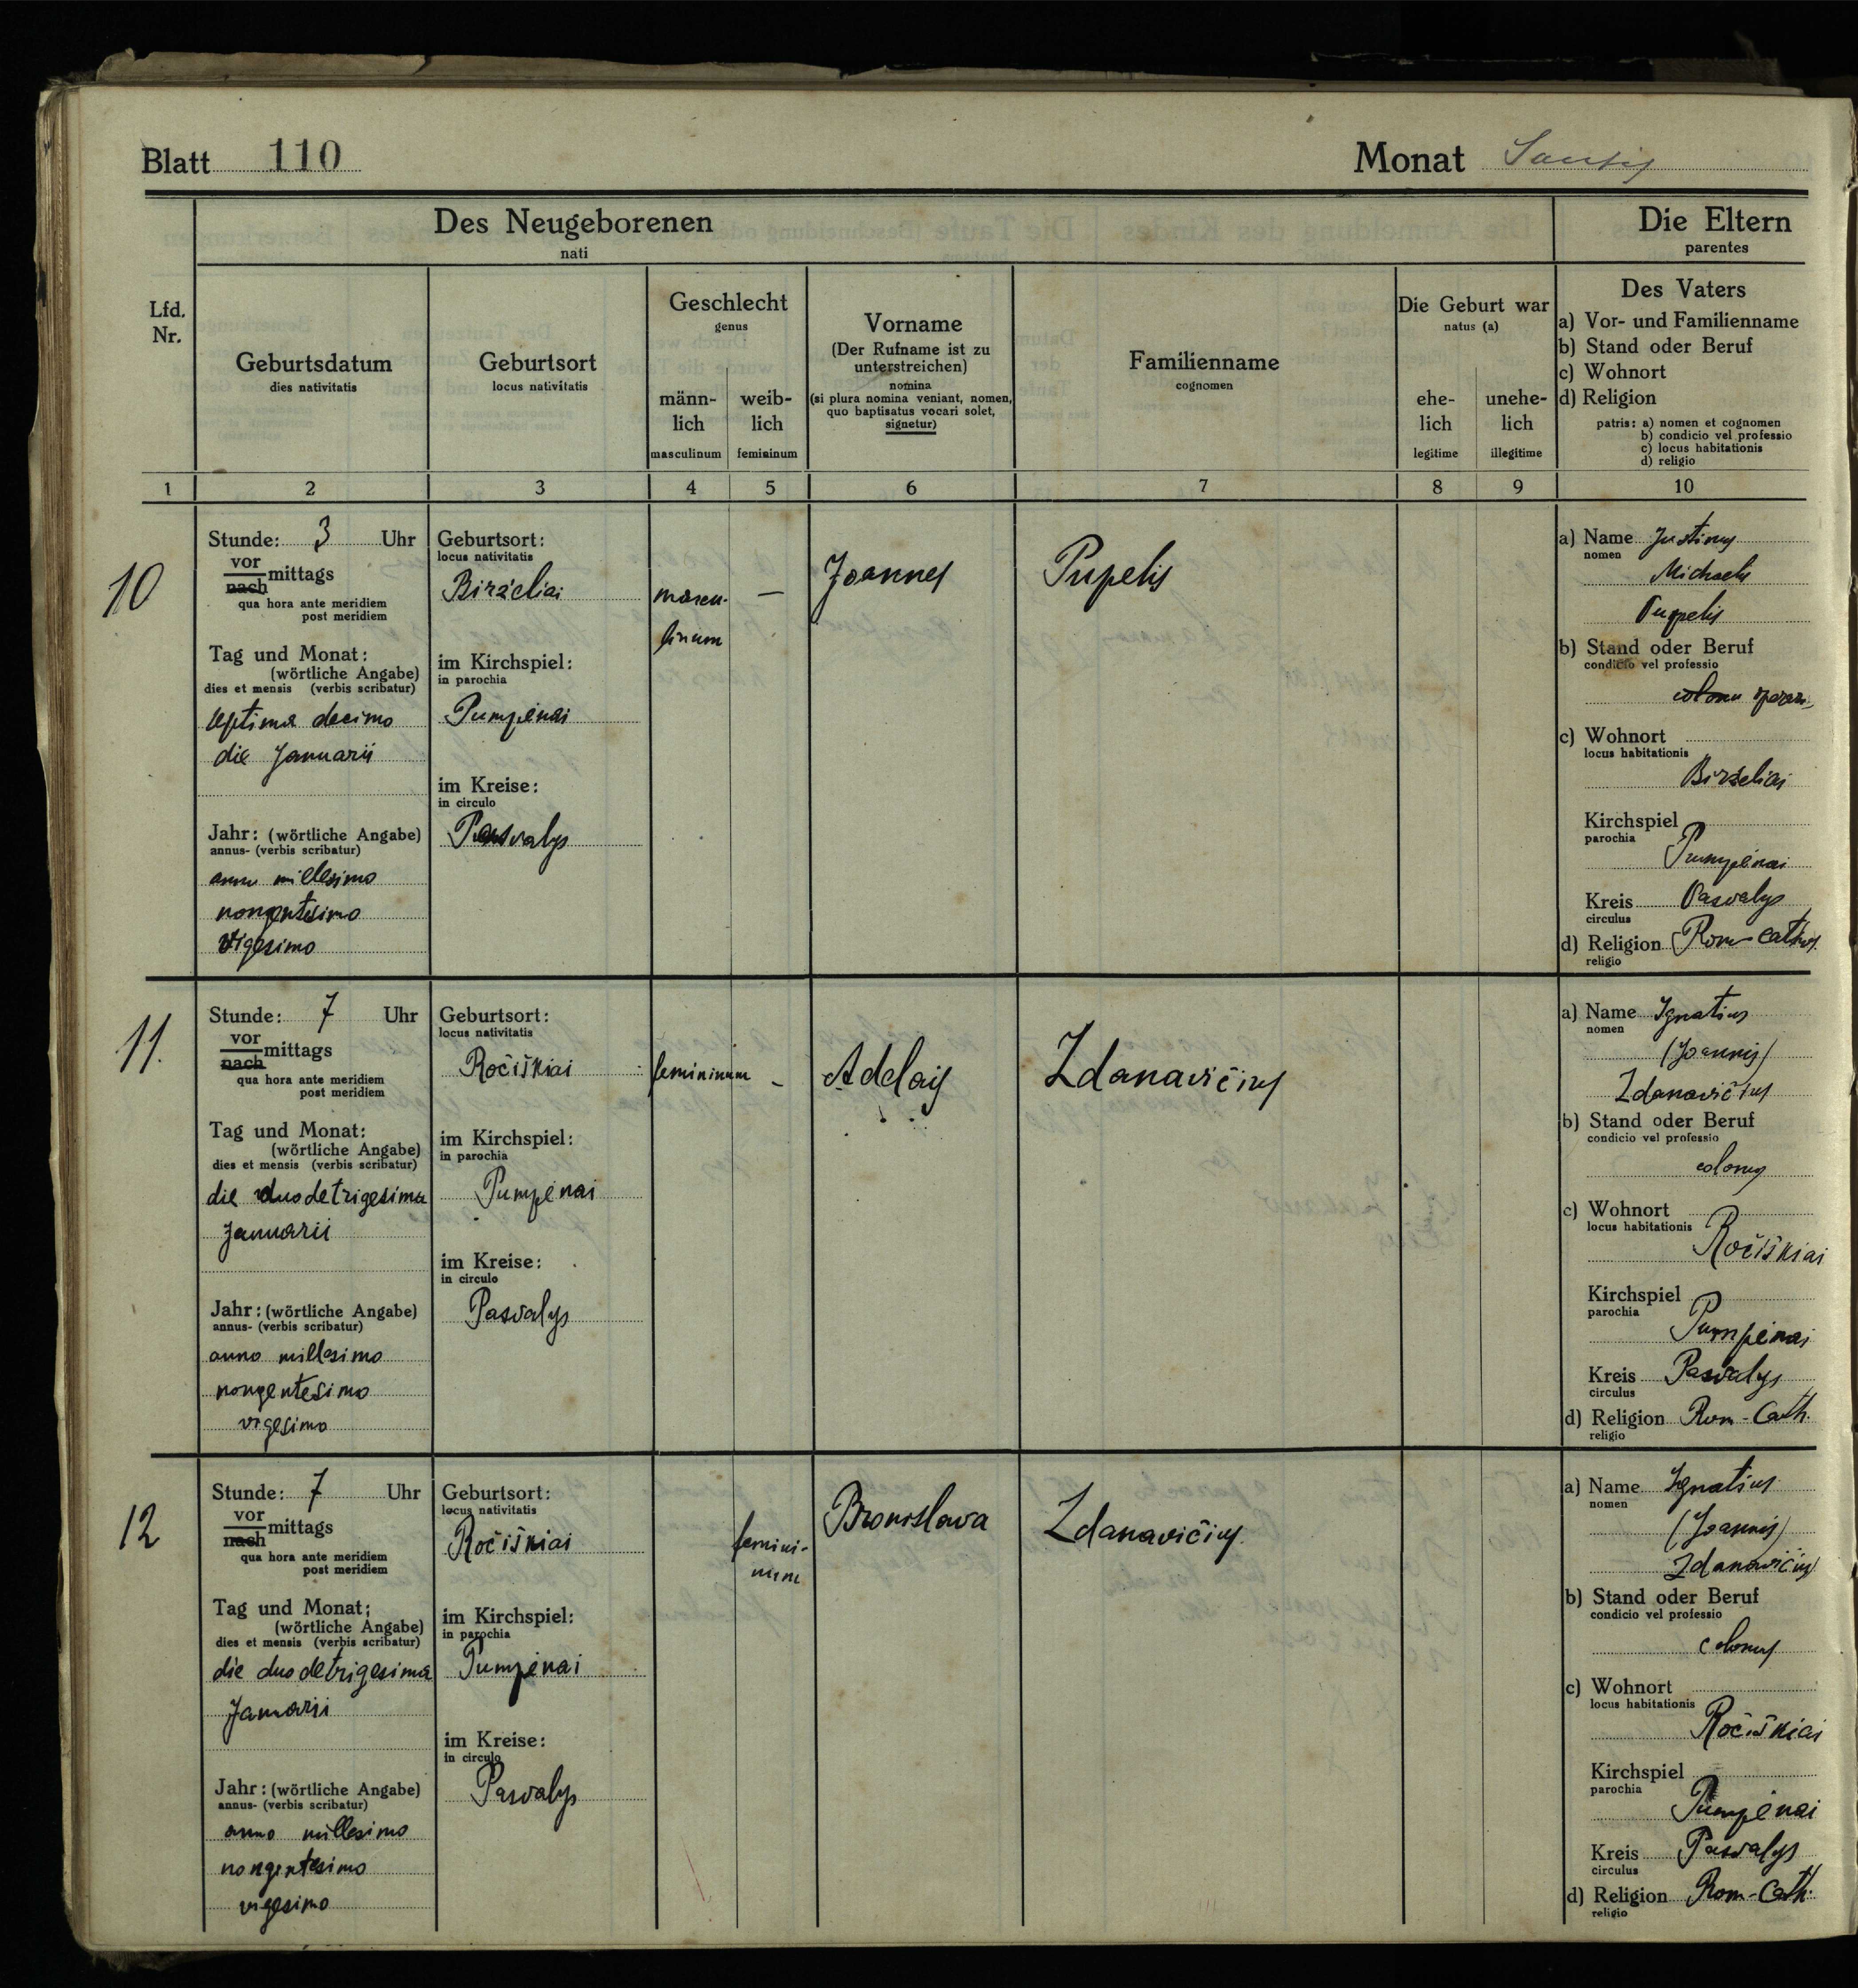 Blatt 110
Monat Sausis
Des Neugeborenen
nati
Die Eltern
parentes
Lfd.
Nr.
Geburtsdatum
dies nativitatis
Geburtsort
locus nativitatis
Geschlecht
genus
männ-
lich
masculinum
weib-
lich
femininum
Vorname
(Der Rufname ist zu
unterstreichen)
nomina
(si plura nomina veniant, nomen,
quo baptisatus vocari solet,
signetur)
Familienname
cognomen
Die Geburt war
natus (a)
ehe-
lich
legitime
unehe-
lich
illegitime
Des Vaters
a) Vor- und Familienname
b) Stand oder Beruf
c) Wohnort
d) Religion
patris: a) nomen et cognomen
b) condicio vel professio
c) locus habitationis
d) religio
1 2 3 4 5 6 7 8 9 10
10
Stunde: 3 Uhr
vor
nach mittags
qua hora ante meridiem
post meridiem
Tag und Monat:
(wörtliche Angabe)
dies et mensis (verbis scribatur)
septima decimo
die Januarii
Jahr: (wörtliche Angabe)
annus- (verbis scribatur)
anno millesimo
nongentesimo
vigesimo
Geburtsort:
locus nativitatis
Birželiai
im Kirchspiel:
in parochia
Pumpėnai
im Kreise:
in circulo
Pasvalys
mascu-
linum
—
Joannes
Pupelis
a) Name Justinus
nomen
Michaelis
Pupelis
b) Stand oder Beruf
condicio vel professio
c) Wohnort
locus habitationis
Birželiai
Kirchspiel
parochia
Pumpėnai
Kreis Pasvalys
circulus
d) Religion Rom-Cathol.
religio
11.
Stunde: 7 Uhr
vor
nach mittags
qua hora ante meridiem
post meridiem
Tag und Monat:
(wörtliche Angabe)
dies et mensis (verbis scribatur)
die duodetrigesima
Januarii
Jahr: (wörtliche Angabe)
annus- (verbis scribatur)
anno millesimo
nongentesimo
vigesimo
Geburtsort:
locus nativitatis
Ročiškiai
im Kirchspiel:
in parochia
Pumpėnai
im Kreise:
in circulo
Pasvalys
femininum -
Adelais
Zdanavičius
a) Name Ignatius
nomen
(Joannis)
Zdanavičius
b) Stand oder Beruf
condicio vel professio
colonus
c) Wohnort
locus habitationis
Ročiškiai
Kirchspiel
parochia
Pumpėnai
Kreis Pasvalys
circulus
d) Religion Rom-Cath.
religio
12
Stunde: 7 Uhr
vor
nach mittags
qua hora ante meridiem
post meridiem
Tag und Monat:
(wörtliche Angabe)
dies et mensis (verbis scribatur)
die duodetrigesima
Januarii
Jahr: (wörtliche Angabe)
annus- (verbis scribatur)
anno millesimo
nongentesimo
vigesimo
Geburtsort:
locus nativitatis
Ročiškiai
im Kirchspiel:
in parochia
Pumpėnai
im Kreise:
in circulo
Pasvalys
femini-
num
Bronislava
Zdanavičius
a) Name Ignatius
nomen
(Joannis)
Zdanavičius
b) Stand oder Beruf
condicio vel professio
colonus
c) Wohnort
locus habitationis
Ročiškiai
Kirchspiel
parochia
Pumpėnai
Kreis Pasvalys
circulus
d) Religion Rom-Cath.
religio